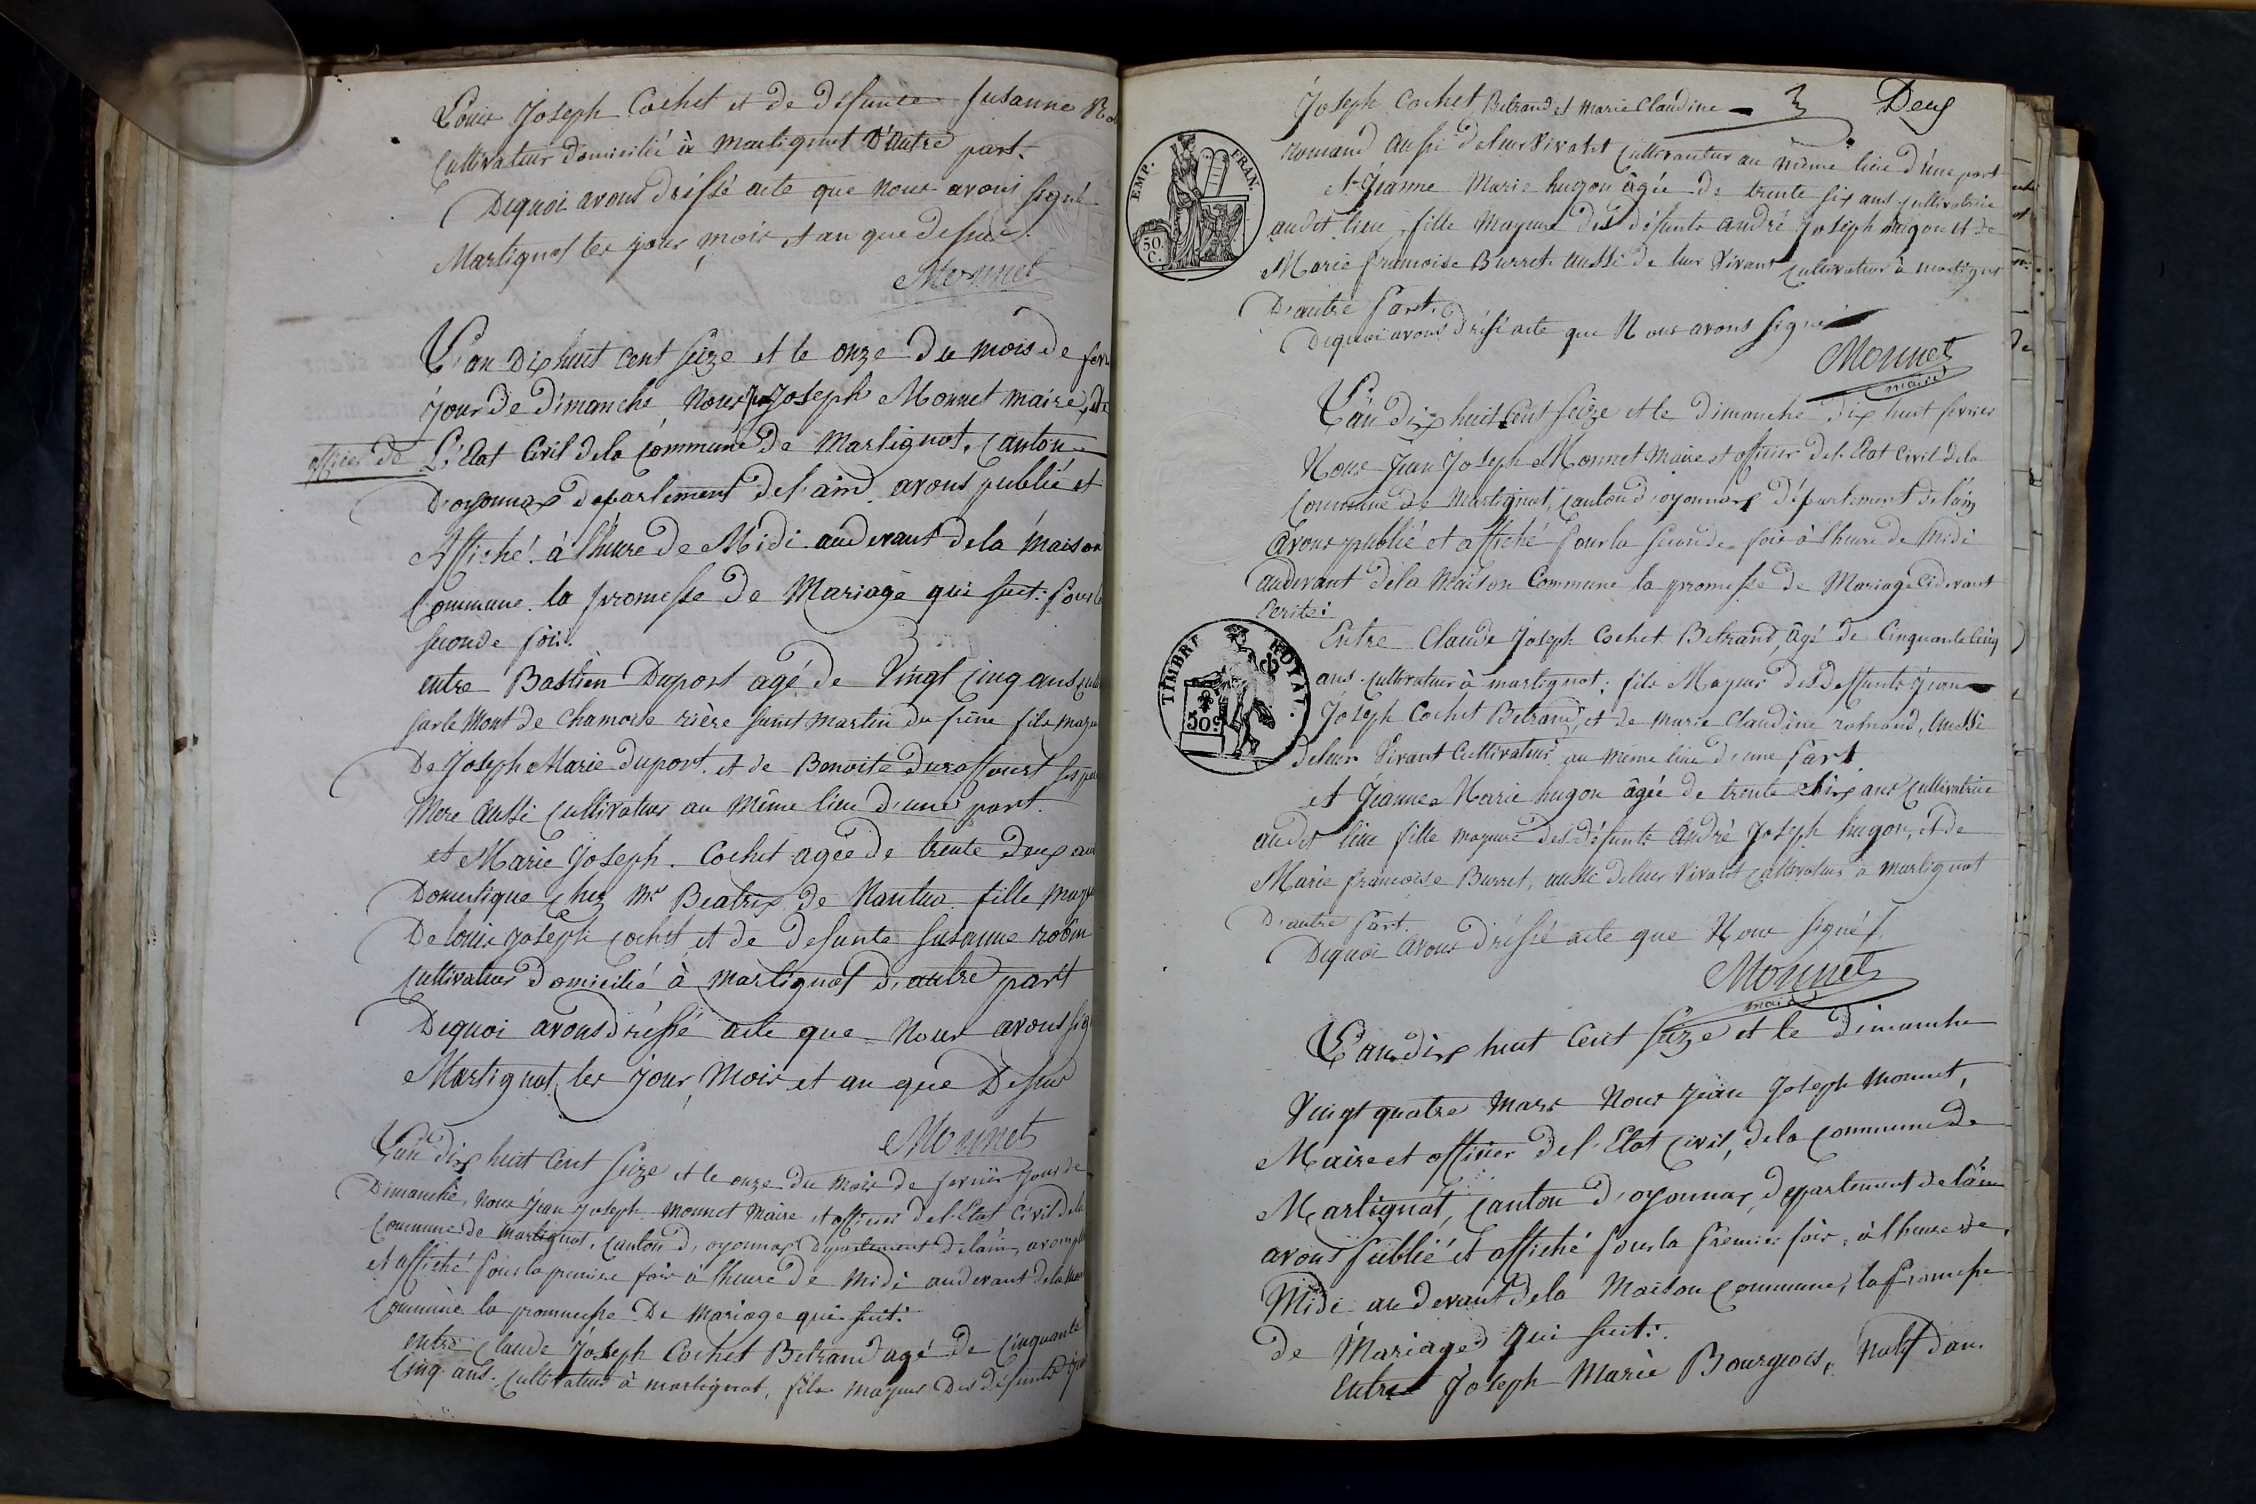 Louis Joseph Cochet et de defunte Susanne Ro
Cultivateur domicilié à Martignat D'autre part.
Dequoi avons dréssé acte que nous avons signé
Martignat les jour, mois et an que dessus.
Monnet
L'an Dix huit cent seize et le onze du mois de fev
jour de dimanche Nous Joseph Monnet maire, de
officier de L'Etat Civil de la Commune de Martignat, Canton
D'oyonnax département de l'ain avons publié et
Affiché à l'heure de Midi audevant de la Maison
Commune la promesse de Mariage qui suit: pour la
seconde fois.
entre Bastien Duport agé de Vingt Cinq ans
sur le Mont de Chamoise rière saint Martin du frêne fils
De Joseph Marie duport et de Benoite duraffourt ses
Mere aussi Cultivateurs au Même lieu d'une part.
et Marie Joseph Cochet agée de trente deux an
Domestique chez Mr Beatrix de Nantua fille
De louis Joseph Cochet et de defunte Susanne
Cultivateur domicilié à Martignat d'autre part
Dequoi avons dréssé acte que Nous avons sig
Martignat les jour, Mois et an que Dessus
Monnet
L'an dix huit Cent seize et le onze du mois de fevrier jour de
Dimanche, Nous Jean Joseph Monnet Maire et officier de l'Etat Civil de la
Commune de Martignat, Canton d'oyonnax Département de lain, avons
et affiché pour la premiere fois à l'heure de Midi audevant de la
Commune la promesse De Mariage qui suit:
entre Claude Joseph Cochet Betrand agé de Cinquante
Cinq ans. Cultivateur à martignat, fils mayeur Des défunts
Deux
Joseph Cochet Betrand et Marie Claudine
romand aussi de leur Vivant Cultivateur au même lieu d'une part
EMP. FRAN.
50. C.
et Jeanne Marie hugon âgée de trente six ans Cultivatrice
audit lieu, fille Mayeure des défunts andré Joseph hugon et de
Marie francoise Burret aussi de leur Vivant Cultivateur à martignat
D'autre part.
Dequoi avons dréssé acte que Nous avons signé
Monnet
maire
L'an dix huit Cent seize et le dimanche dix huit fevrier
Nous Jean Joseph Monnet Maire et officier de l'Etat Civil de la
Commune de Martignat, Canton d'oyonnax Département de l'ain
avons publié et affiché pour la seconde fois à l'heure de Midi
audevant de la Maison Commune la promesse de Mariage Cidevant
Ecrite:
TIMBRE ROYAL.
50c
Entre Claude Joseph Cochet Betrand, âgé de Cinquante Cinq
ans Cultivateur à martignat; fils Mayeur des deffunts jean
Joseph Cochet Betrand, et de marie Claudine romand, Aussi
de leur Vivant Cultivateurs au même lieu d'une part
et Jeanne Marie hugon âgée de trente Six ans Cultivatrice
audit lieu fille mayeure des défunts André Joseph hugon, et de
Marie francoise Burret, aussi de leur Vivant Cultivateur à Martignat
D'autre part.
Dequoi avons dréssé acte que Nous signé
Monnet
maire
L'an dix huit Cent seize et le dimanche
Vingt quatre mars Nous Jean Joseph Monnet,
Maire et officier de l'Etat Civil, de la Commune de
Martignat, Canton d'oyonnax, département de l'ain
avons publié et affiché pour la premier fois, à l'heure de
Midi au devant de la Maison Commune, la promesse
de Mariage qui suit:
Entre Joseph Marie Bourgeois, Natif d'an